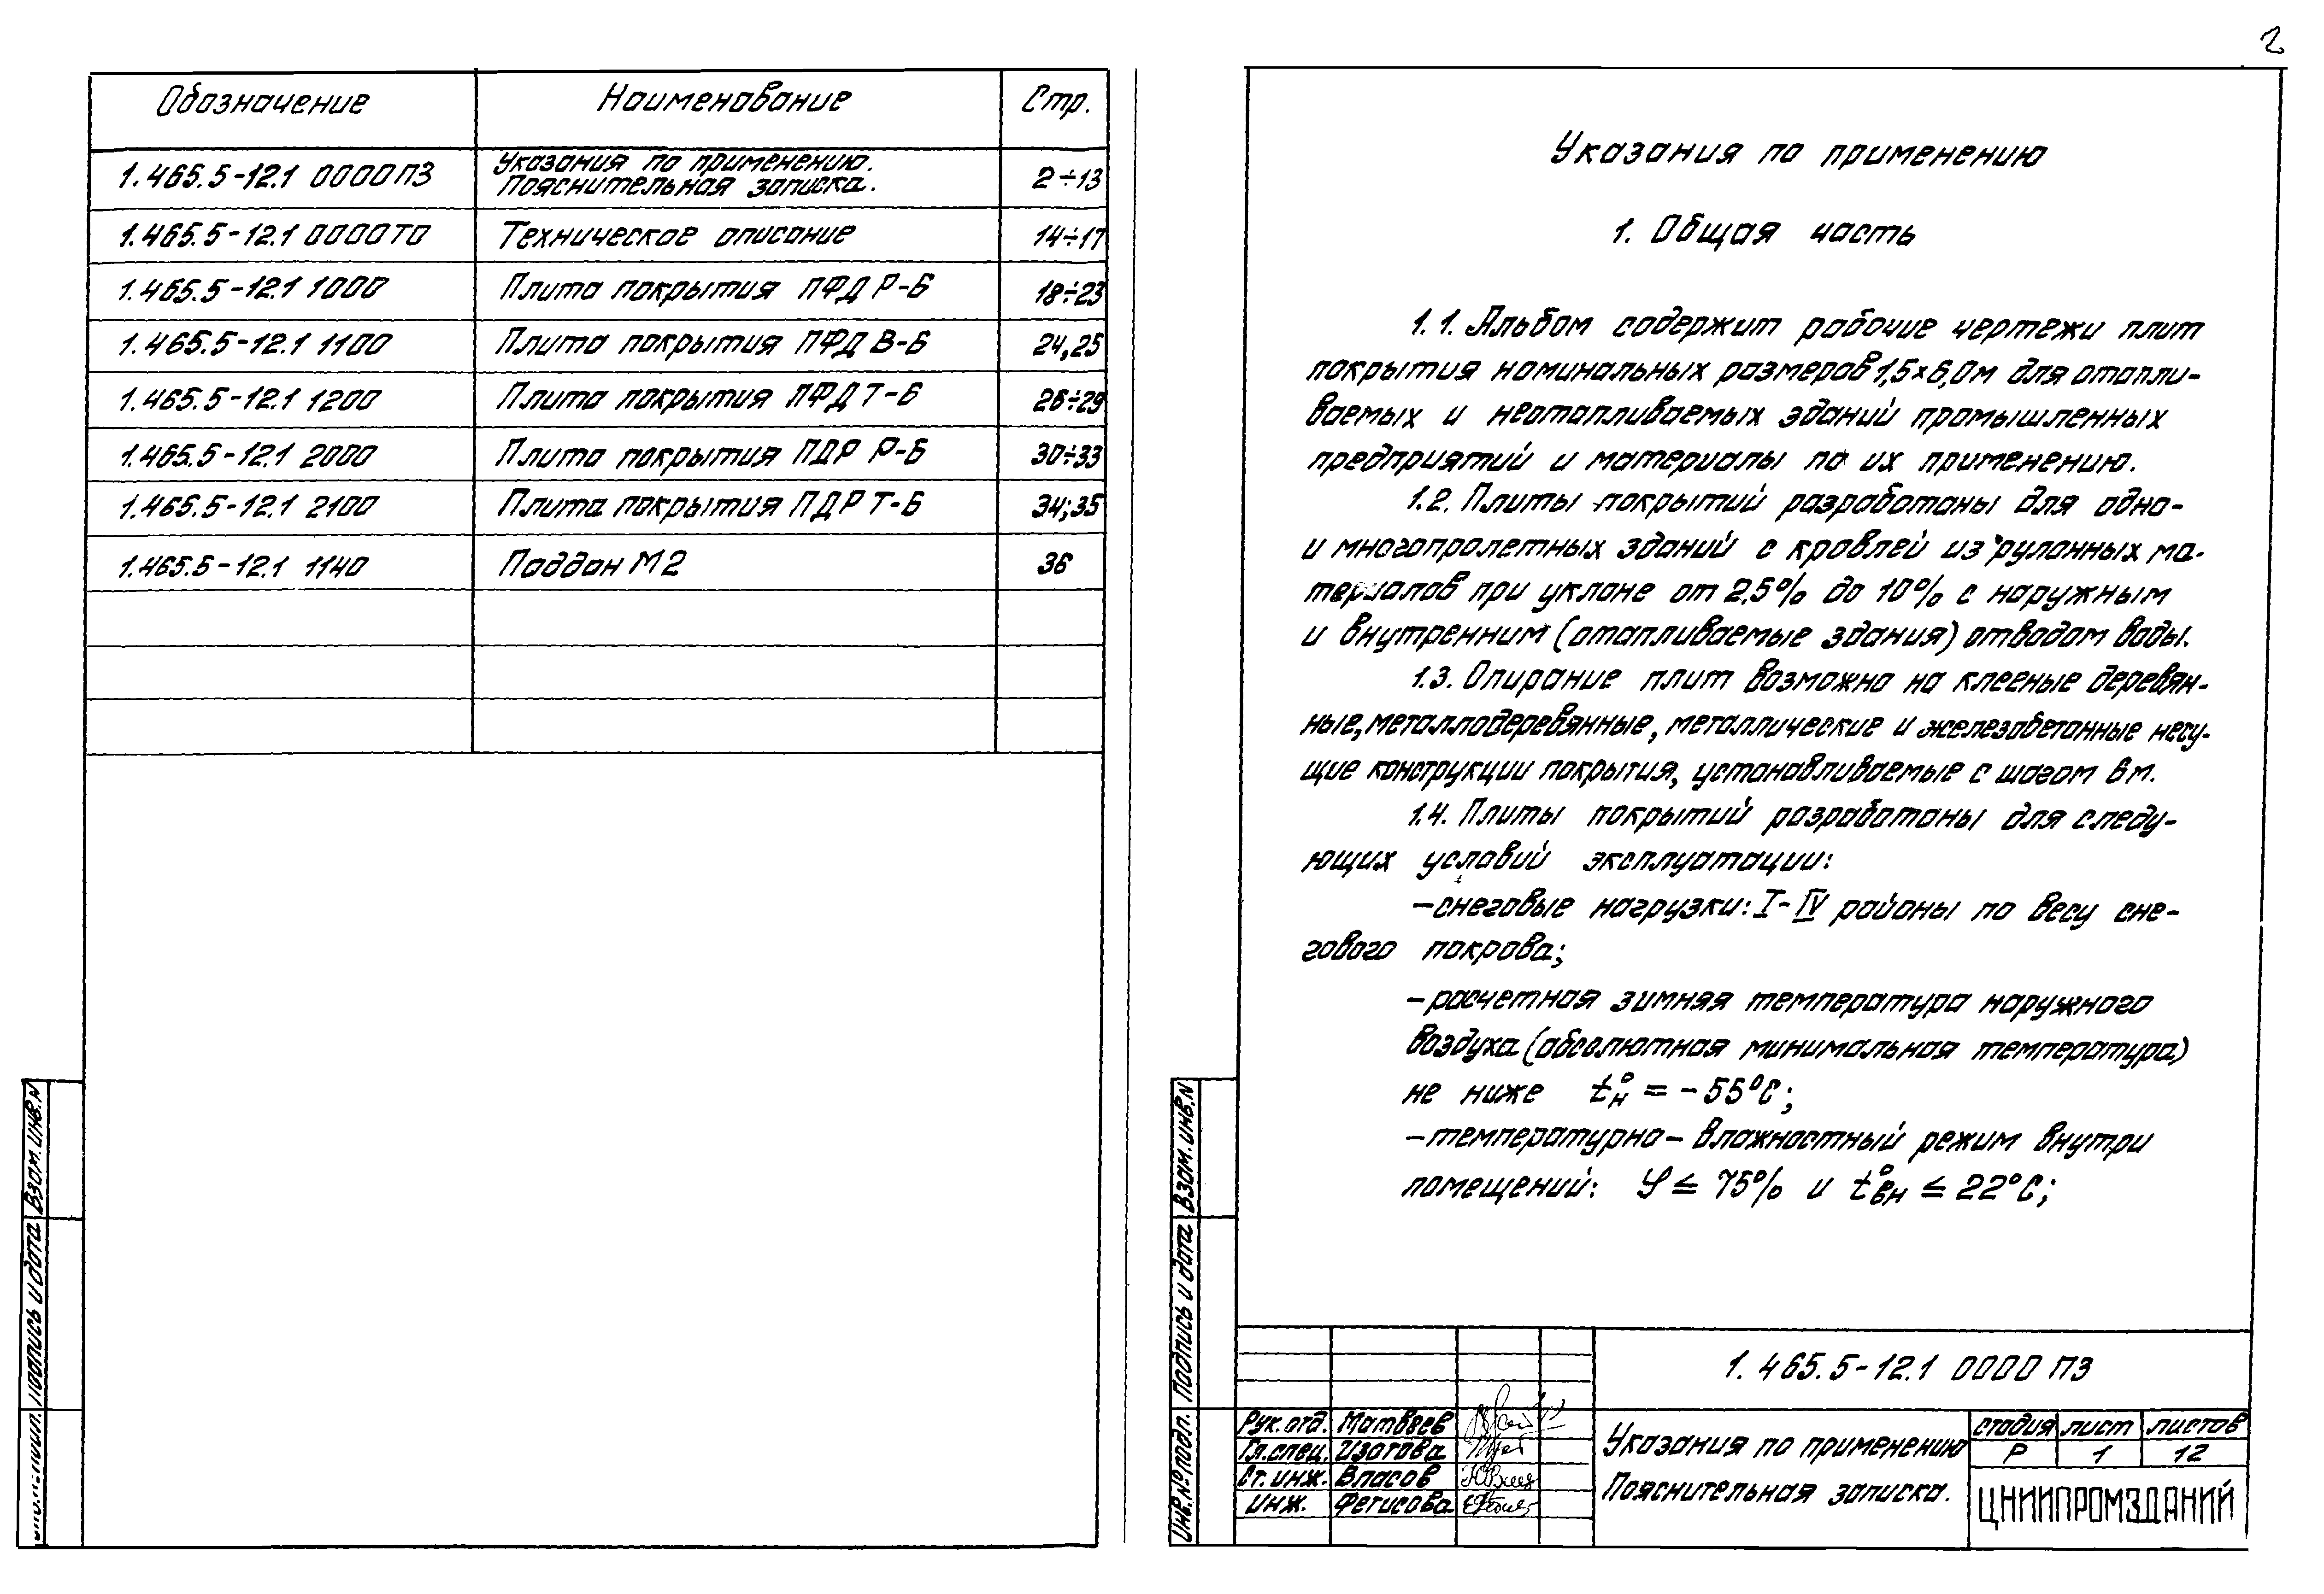 2
Обозначение Наименование Стр.
1.465.5-12.1 0000ПЗ Указания по применению. Пояснительная записка. 2÷13
1.465.5-12.1 0000ТО Техническое описание 14÷17
1.465.5-12.1 1000 Плита покрытия ПФД Р-Б 18÷23
1.465.5-12.1 1100 Плита покрытия ПФД В-Б 24,25
1.465.5-12.1 1200 Плита покрытия ПФД Т-Б 26÷29
1.465.5-12.1 2000 Плита покрытия ПДР Р-Б 30÷33
1.465.5-12.1 2100 Плита покрытия ПДР Т-Б 34;35
1.465.5-12.1 1140 Поддон М2 36
Взам. инв. N
Подпись и дата
Указания по применению
1. Общая часть
1.1. Альбом содержит рабочие чертежи плит
покрытия номинальных размеров 1,5×6,0м для отапли-
ваемых и неотапливаемых зданий промышленных
предприятий и материалы по их применению.
1.2. Плиты покрытий разработаны для одно-
и многопролетных зданий с кровлей из рулонных ма-
териалов при уклоне от 2,5% до 10% с наружным
и внутренним (отапливаемые здания) отводом воды.
1.3. Опирание плит возможно на клееные деревян-
ные, металлодеревянные, металлические и железобетонные несу-
щие конструкции покрытия, устанавливаемые с шагом 6м.
1.4. Плиты покрытий разработаны для следу-
ющих условий эксплуатации:
– снеговые нагрузки: I-IV районы по весу сне-
гового покрова;
– расчетная зимняя температура наружного
воздуха (абсолютная минимальная температура)
не ниже t°н = -55°С;
– температурно-влажностный режим внутри
помещений: φ ≤ 75% и t°вн ≤ 22°С;
Взам. инв. N
Подпись и дата
Инв. № подл.
1.465.5-12.1 0000 ПЗ
Рук. отд. Матвеев
Гл. спец. Изотова
Ст. инж. Власов
Инж. Фетисова
Указания по применению
Пояснительная записка.
стадия лист листов
Р 1 12
ЦНИИПРОМЗДАНИЙ